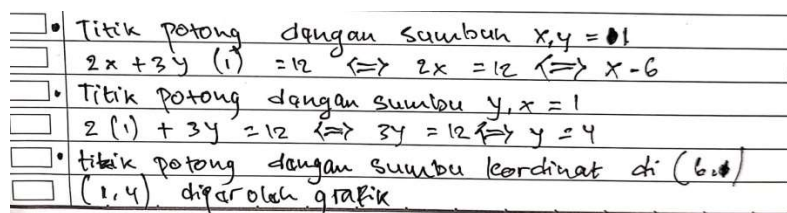 • Titik potong dengan sumbuh x, y = 1
2x + 3y (1) = 12 <=> 2x = 12 <=> x - 6
• Titik potong dengan sumbu y, x = 1
2 (1) + 3y = 12 <=> 3y = 12 <=> y = 4
• titik potong dengan sumbu kordinat di (6,1)
(1,4) digarolah grafik